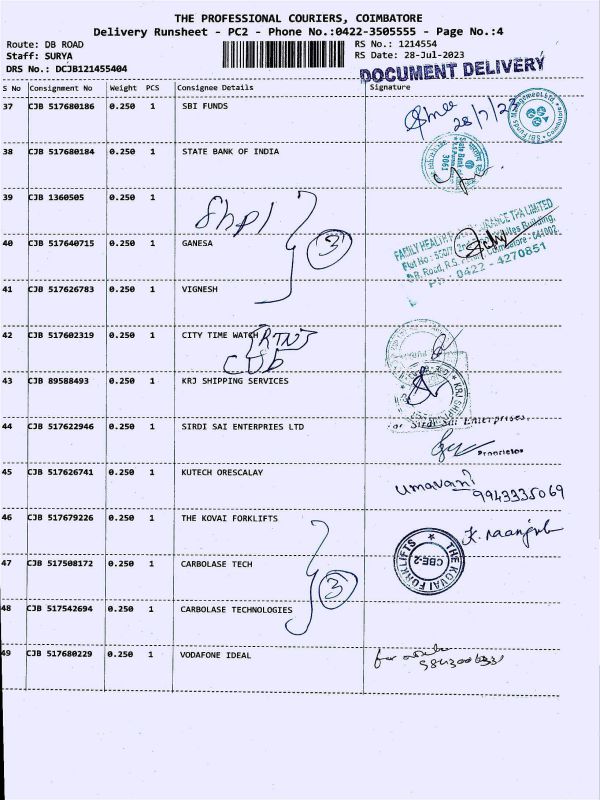 THE PROFESSIONAL COURIERS, COIMBATORE
Delivery Runsheet - PC2 - Phone No.:0422-3505555 - Page No.:4
Route: DB ROAD
RS No.: 1214554
Staff: SURYA
RS Date: 28-Jul-2023
DRS No.: DCJB121455404
DOCUMENT DELIVERY
S No Consignment No Weight PCS Consignee Details Signature
37 CJB 517680186 0.250 1 SBI FUNDS
28/7/23
38 CJB 517680184 0.250 1 STATE BANK OF INDIA
State Bank
3061
39 CJB 1360505 0.250 1
Shpl
3
40 CJB 517640715 0.250 1 GANESA
FAMILY HEALTH INSURANCE TPA LIMITED
D.B. Road, R.S. Coimbatore - 641002
Ph : 0422 - 4270851
41 CJB 517626783 0.250 1 VIGNESH
42 CJB 517602319 0.250 1 CITY TIME WATCH
RTN
CUB
43 CJB 89588493 0.250 1 KRJ SHIPPING SERVICES
44 CJB 517622946 0.250 1 SIRDI SAI ENTERPRIES LTD
For Sirdi Sai Enterprises,
Proprietor
45 CJB 517626741 0.250 1 KUTECH ORESCALAY
umavani
9943335069
46 CJB 517679226 0.250 1 THE KOVAI FORKLIFTS
THE KOVAI FORKLIFTS
CBE-2
47 CJB 517508172 0.250 1 CARBOLASE TECH
3
48 CJB 517542694 0.250 1 CARBOLASE TECHNOLOGIES
49 CJB 517680229 0.250 1 VODAFONE IDEAL